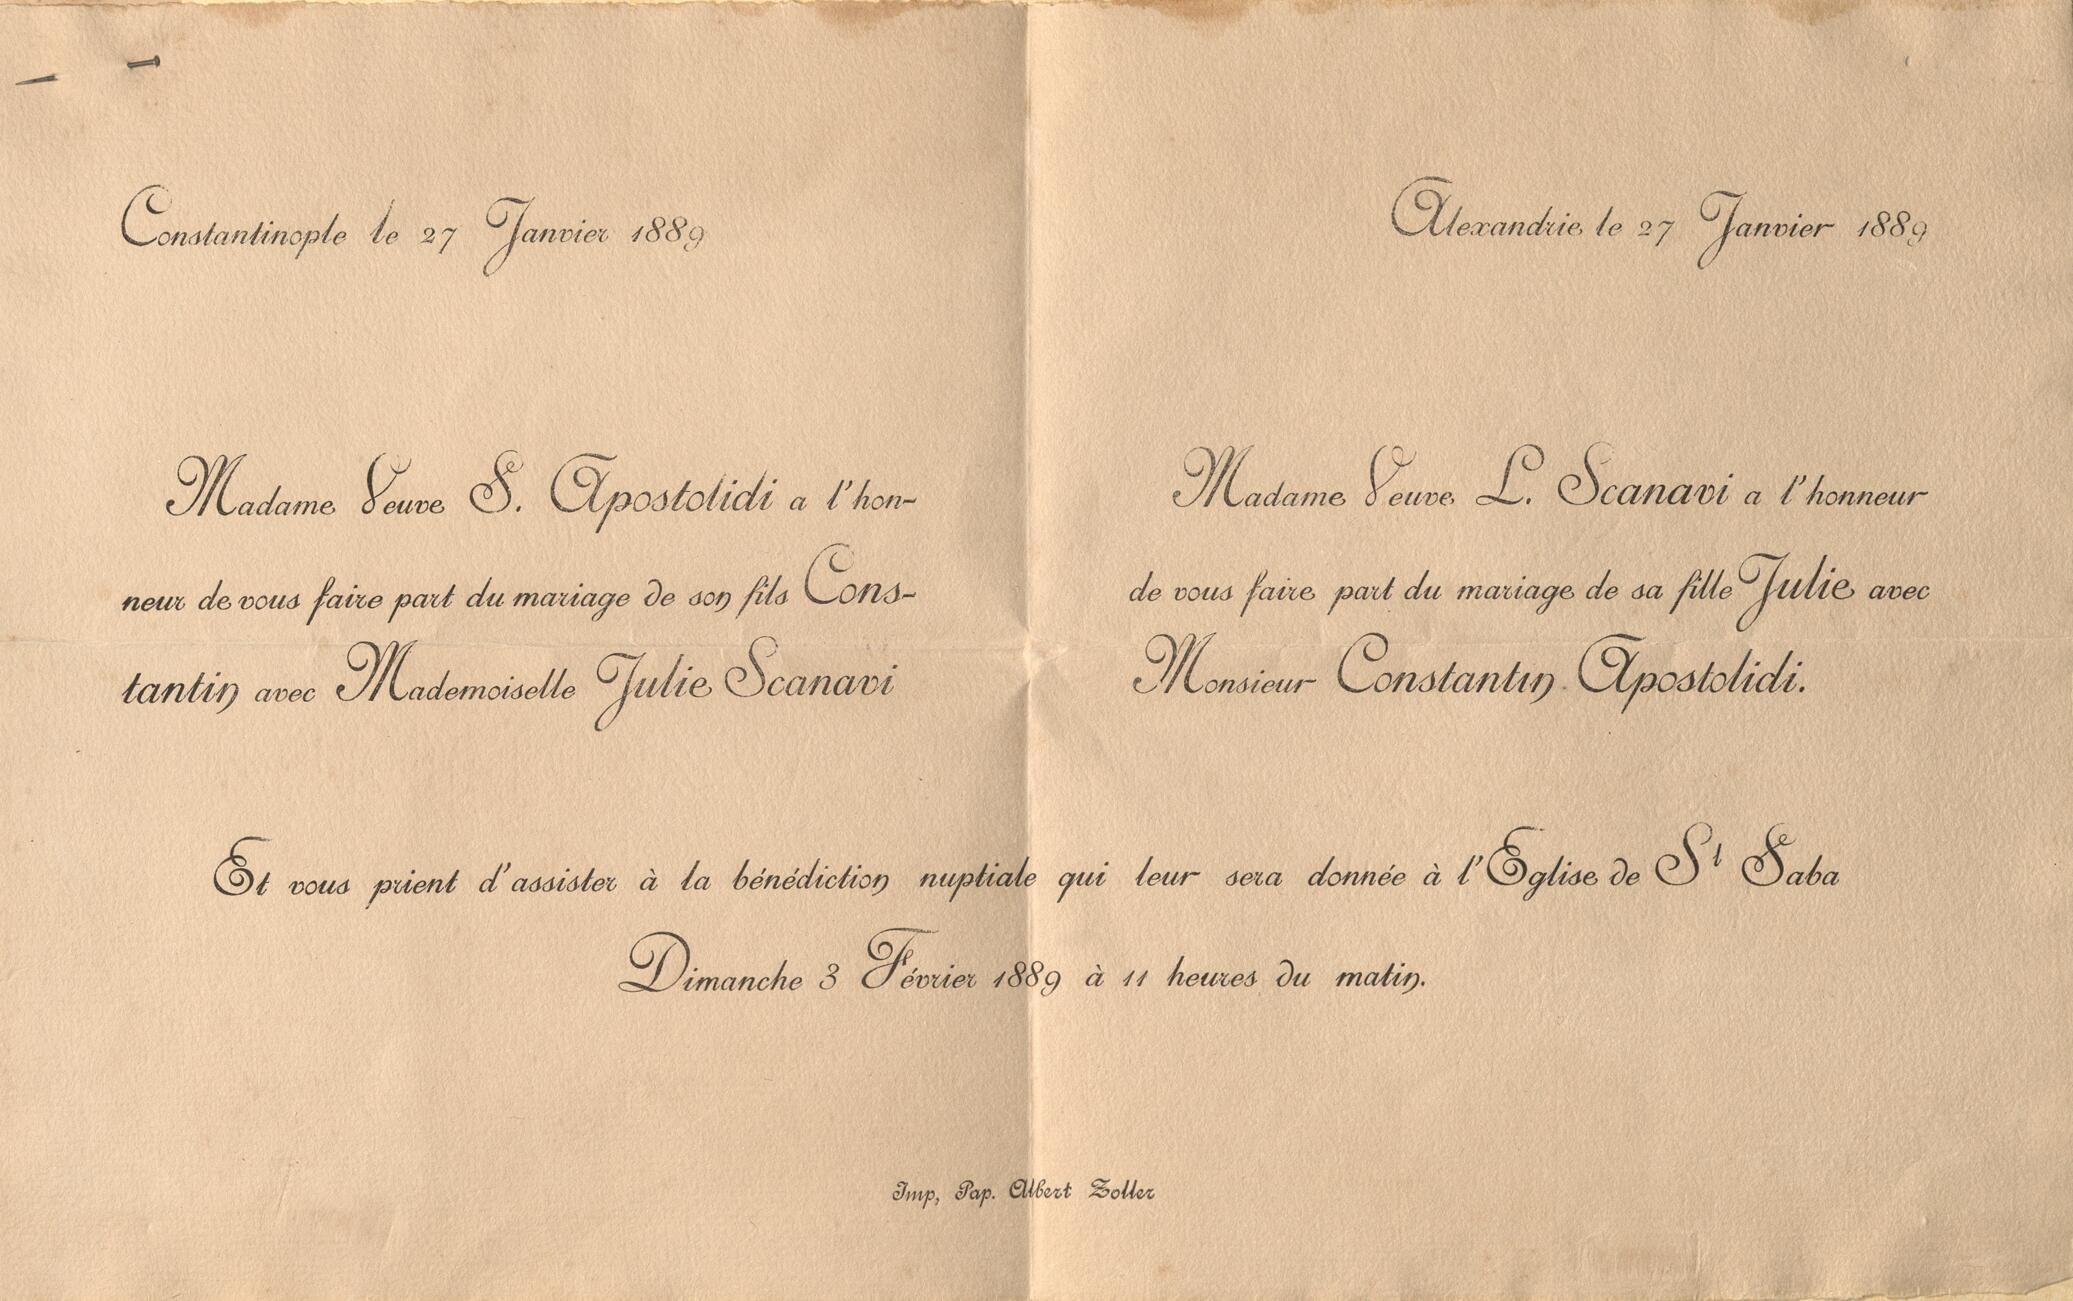 Constantinople le 27 Janvier 1889
Madame Veuve S. Apostolidi a l'hon-
neur de vous faire part du mariage de son fils Cons-
tantin avec Mademoiselle Julie Scanavi
Alexandrie le 27 Janvier 1889
Madame Veuve L. Scanavi a l'honneur
de vous faire part du mariage de sa fille Julie avec
Monsieur Constantin Apostolidi.
Et vous prient d'assister à la bénédiction nuptiale qui leur sera donnée à l'Eglise de St Saba
Dimanche 3 Février 1889 à 11 heures du matin.
Imp, Pap. Albert Zoller